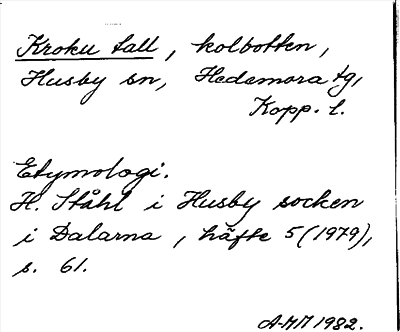 Kroku tall, kolbotten,
Husby sn, Hedemora tg,
Kopp. l.
Etymologi.
H. Ståhl i Husby socken
i Dalarna, häfte 5 (1979),
s. 61.
A-MM 1982.